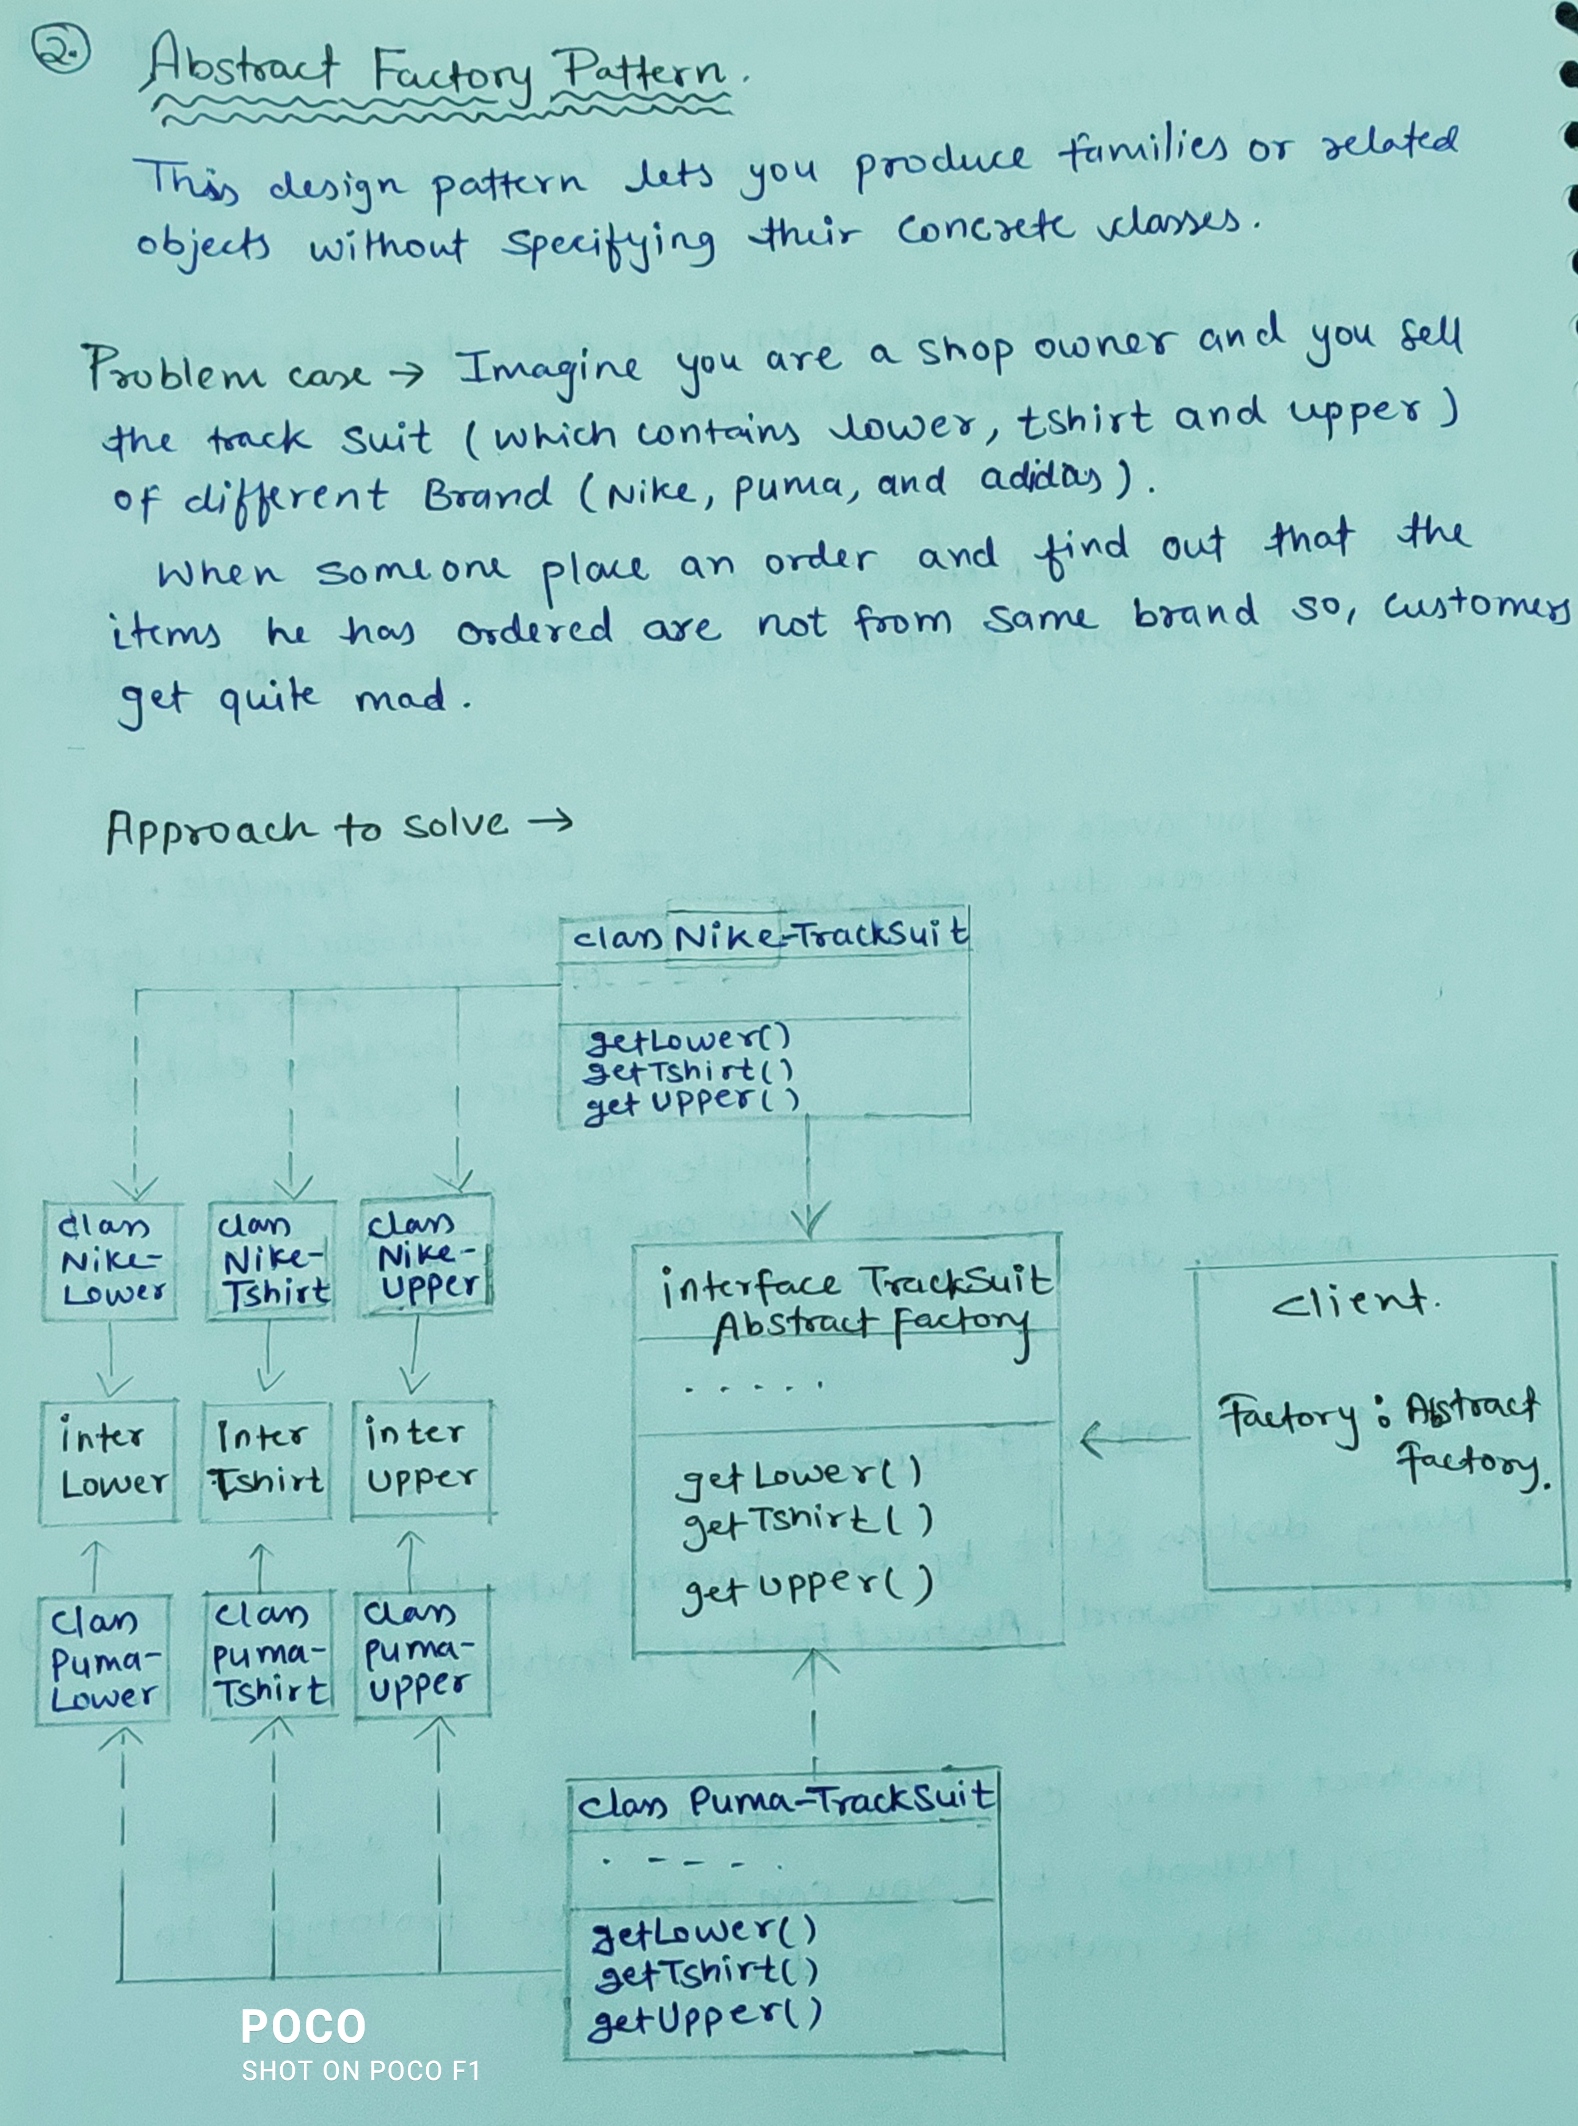 2.
Abstract Factory Pattern.
This design pattern lets you produce families or related
objects without specifying their concrete classes.
Problem case → Imagine you are a shop owner and you sell
the track suit (which contains lower, tshirt and upper)
of different Brand (Nike, puma, and adidas).
When someone place an order and find out that the
items he has ordered are not from same brand so, customers
get quite mad.
Approach to solve →
class Nike-TrackSuit
- - - -
getLower()
getTshirt()
getUpper()
class
Nike-
Lower
class
Nike-
Tshirt
class
Nike-
Upper
interface TrackSuit
Abstract factory
. . . . .
getLower()
getTshirt()
getUpper()
client.
Factory: Abstract
factory.
inter
Lower
inter
Tshirt
inter
upper
class
Puma-
Lower
class
puma-
Tshirt
class
puma-
upper
class Puma-TrackSuit
. - - - .
getLower()
getTshirt()
getUpper()
POCO
SHOT ON POCO F1